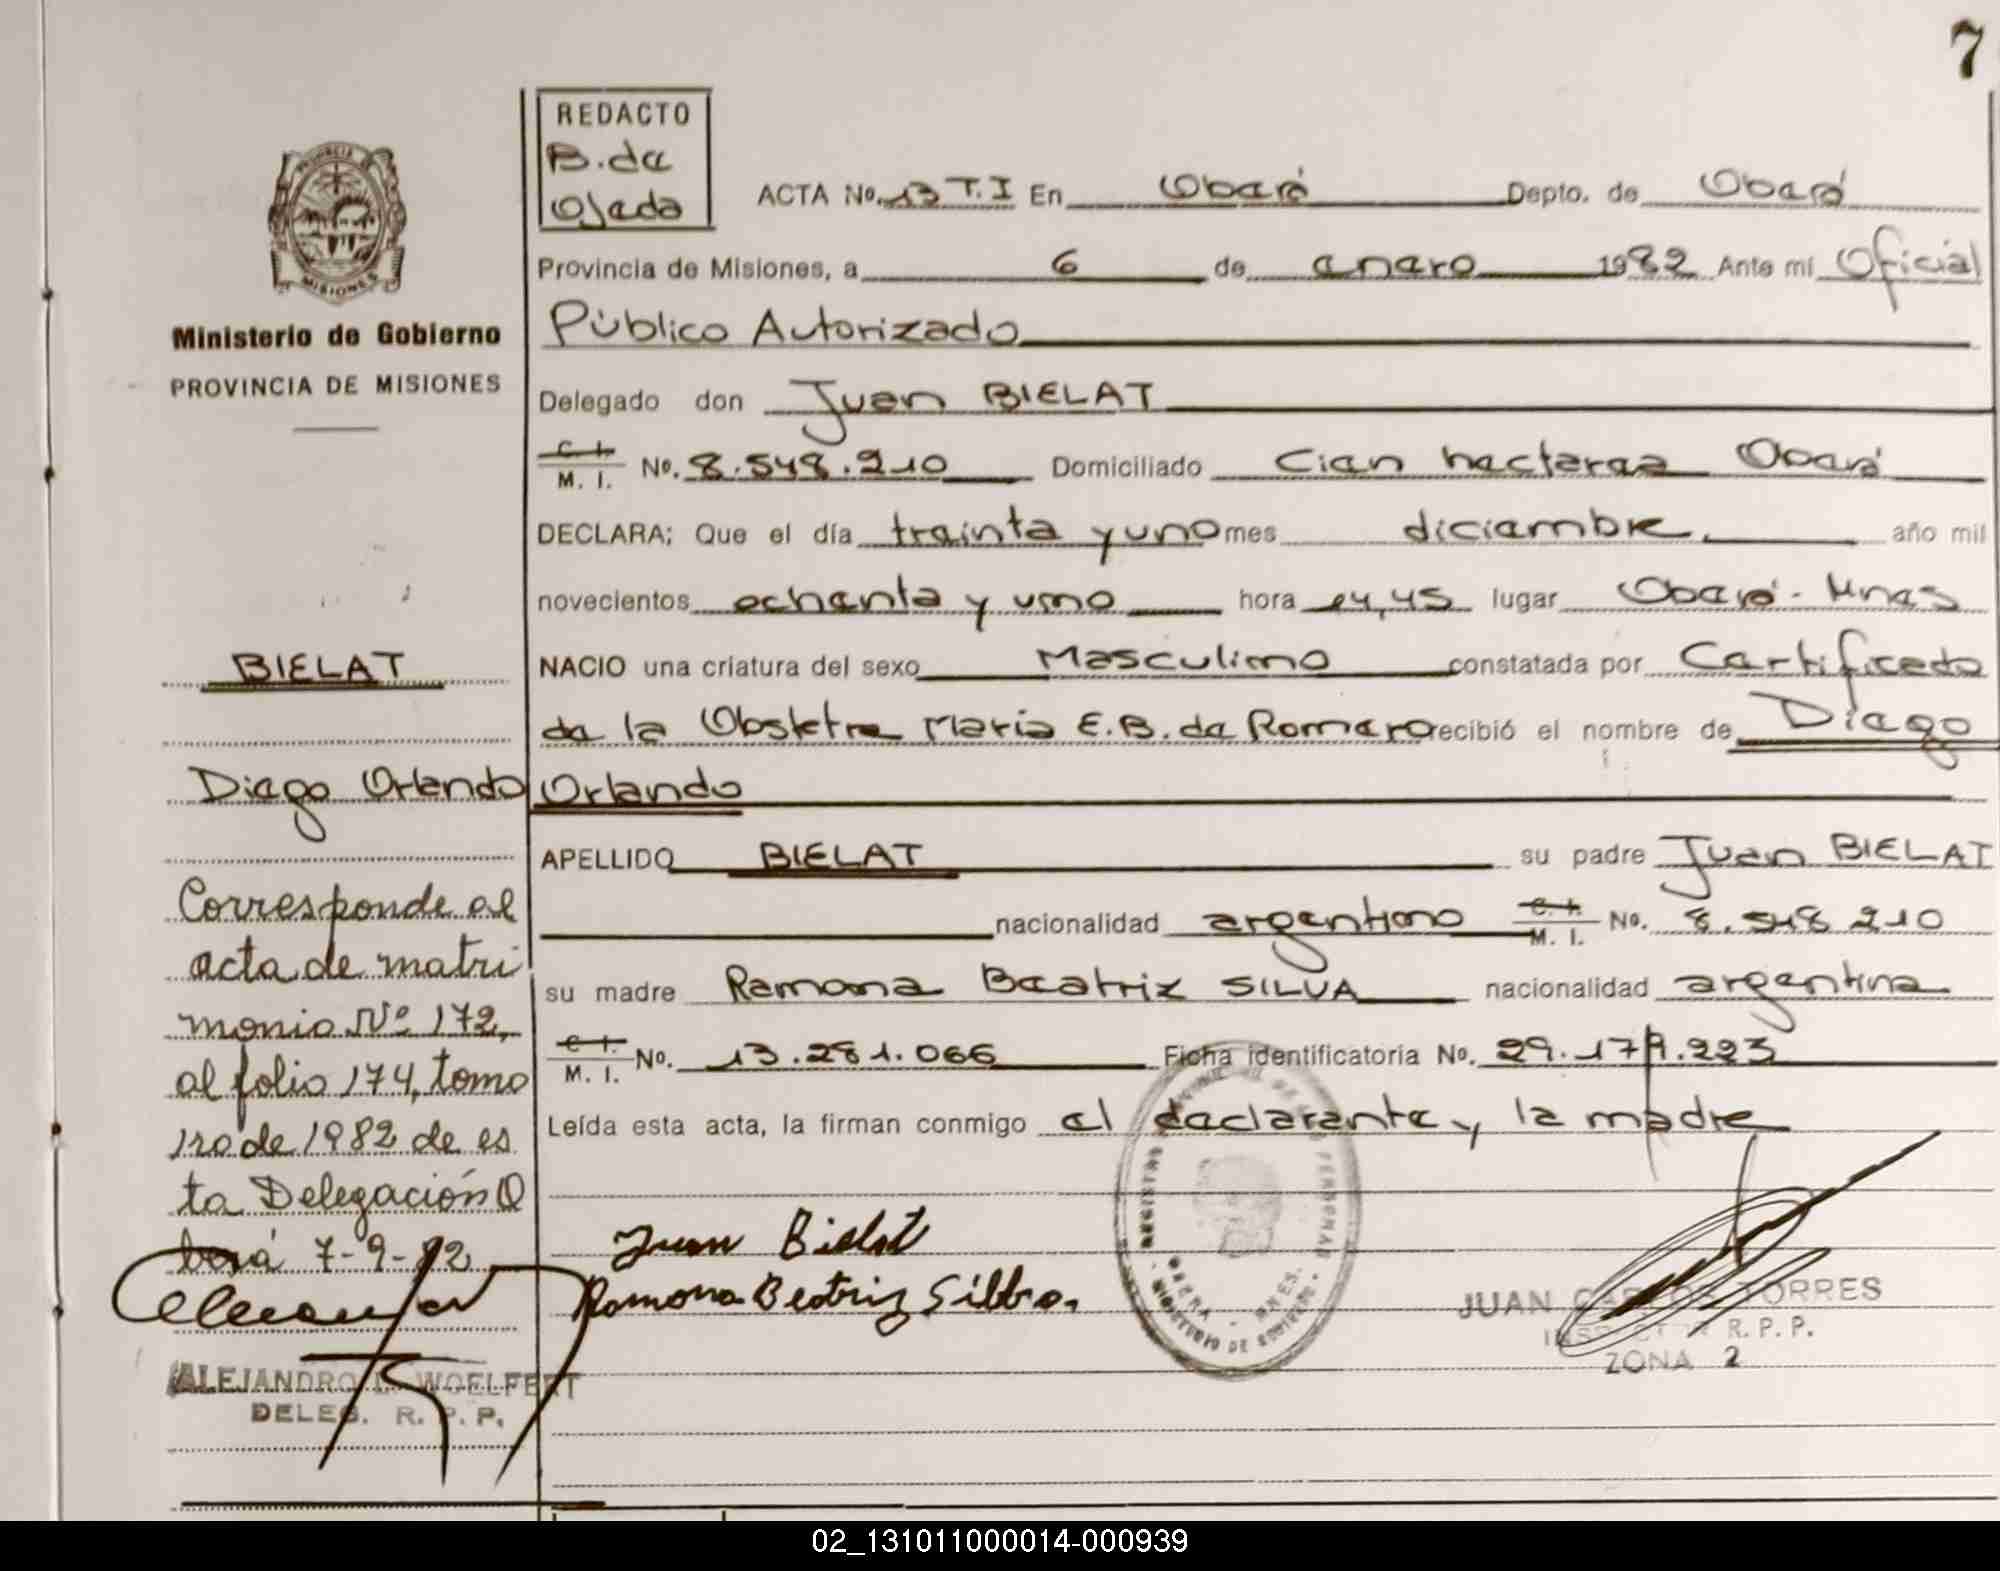 7
REDACTO
B. de
Ojeda
PROVINCIA DE
MISIONES
Ministerio de Gobierno
PROVINCIA DE MISIONES
ACTA No. 13 T.I En Oberá Depto. de Oberá
Provincia de Misiones, a 6 de enero 1982 Ante mí Oficial
Público Autorizado
Delegado don Juan BIELAT
C. I. M. I. No. 8.548.210 Domiciliado Cien hectareas Oberá
DECLARA; Que el día treinta y uno mes diciembre año mil
novecientos ochenta y uno hora 14,45 lugar Oberá - Mnes
NACIO una criatura del sexo Masculino constatada por Certificado
de la Obstetra Maria E.B. de Romero recibió el nombre de Diego
Orlando
APELLIDO BIELAT su padre Juan BIELAT
nacionalidad argentino C. I. M. I. No. 8.548.210
su madre Ramona Beatriz SILVA nacionalidad argentina
C. I. M. I. No. 13.281.066 Ficha identificatoria No. 29.179.223
Leída esta acta, la firman conmigo el declarante y la madre
Juan Bielat
Ramona Beatriz Silva
JUAN CARLOS TORRES
INSPECTOR R. P. P.
ZONA 2
BIELAT
Diego Orlando
Corresponde al
acta de matri
monio Nº 172,
al folio 174, tomo
1ro de 1982 de es
ta Delegación O
berá 7-9-82
ALEJANDRO L. WOELFERT
DELEG. R. P. P.
02_131011000014-000939